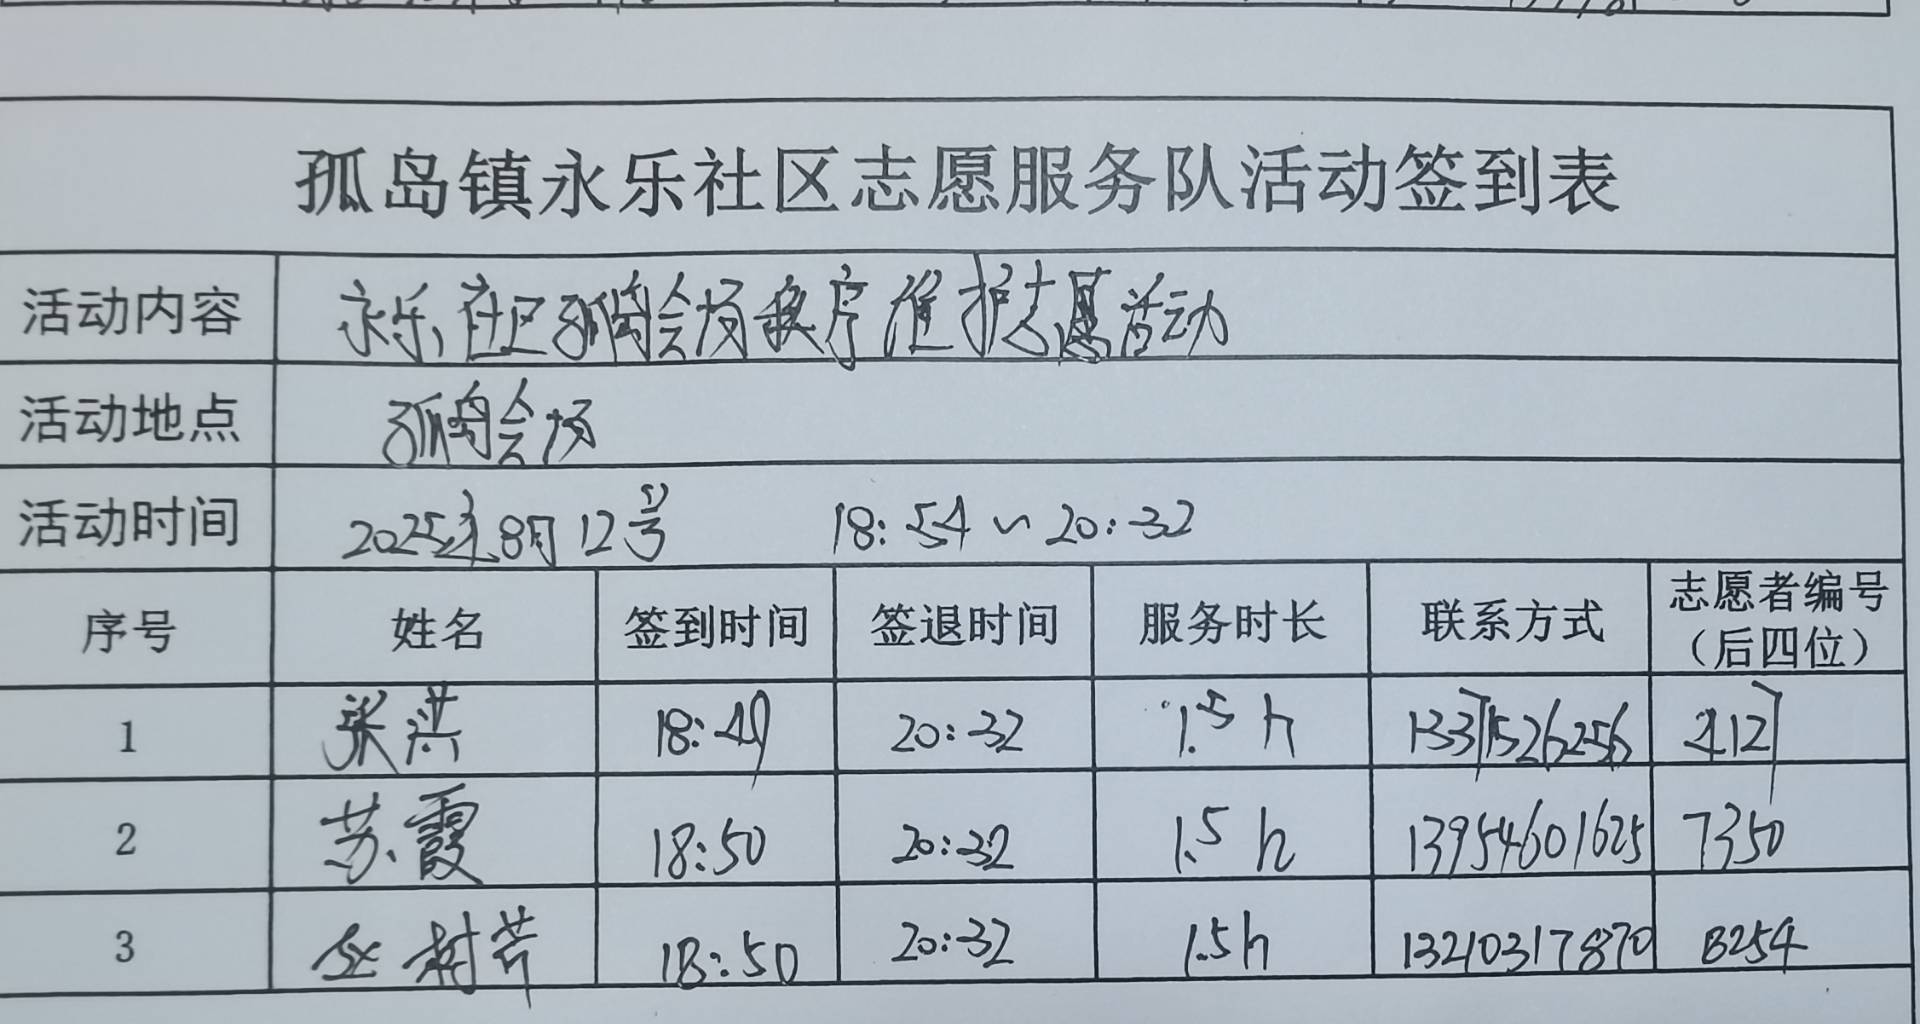 孤岛镇永乐社区志愿服务队活动签到表
活动内容 永乐社区孤岛会场秩序维护志愿活动
活动地点 孤岛会场
活动时间 2025年8月12号 18:54~20:32
序号 姓名 签到时间 签退时间 服务时长 联系方式 志愿者编号
（后四位）
1 张洪 18:49 20:32 1.5h 13371526256
2 苏霞 18:50 20:32 1.5h 13954601625 7350
3 树芹 18:50 20:32 1.5h 13210317870 8254